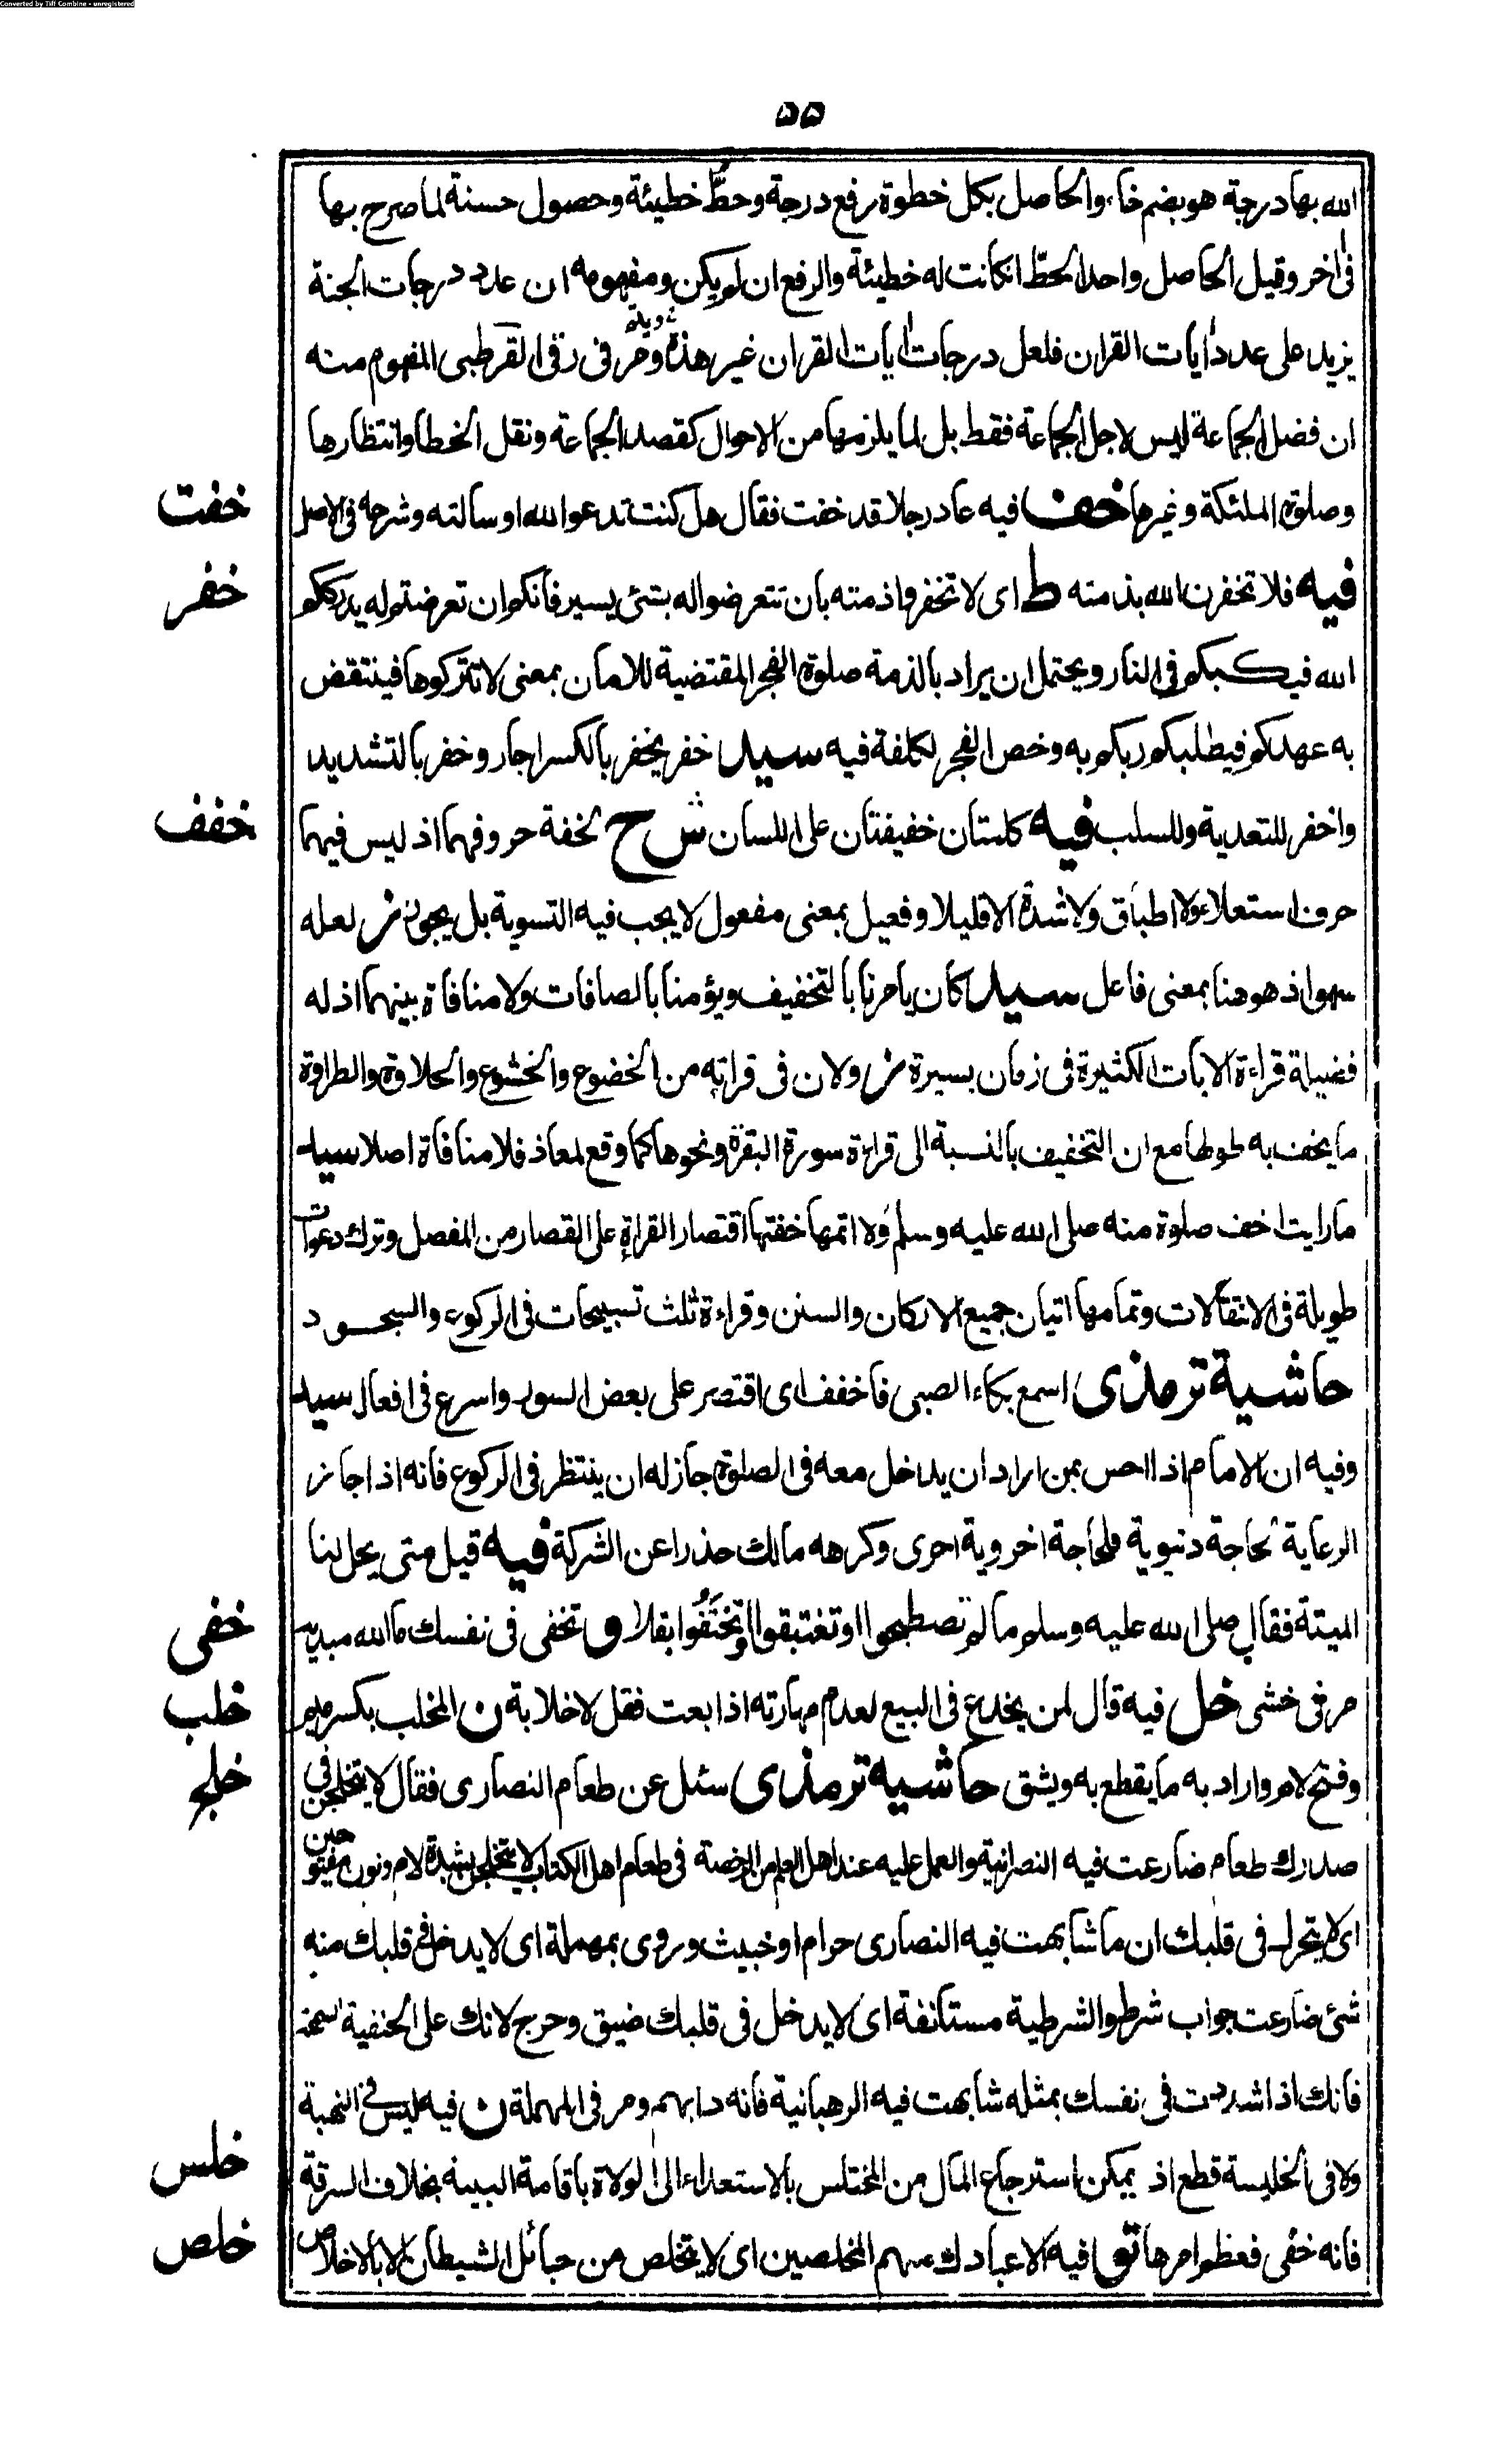 Converted by Tiff Combine - unregistered
۵۵
الله بها درجة هو بضم خاء والحاصل بكل خطوة رفع درجة وحطّ خطيئة وحصول حسنة لما صرح بها
فى اٰخر وقيل الحاصل واحد الحطّ انكانت له خطيئة والرفع ان لم يكن ومفهومه ان عدد درجات الجنة
يزيد على عدد اٰيات القران فلعل درجات اٰيات القران غير هذه ومر فى رقى القرطبى المفهوم منه
ان فضل الجماعة ليس لاجل الجماعة فقط بل لما يلزمها من الاحوال كقصد الجماعة ونقل الخطا وانتظارها
وصلوة الملئكة وغيرها خف فيه عاد رجلا قد خفت فقال هل كنت تدعو الله او سألته وشرحه فى الاصل
خفت
فيه فلا تخفرن الله بذمته ط اى لا تخفروا ذمته بان تتعرضوا له بشئ يسير فانكم ان تعرضتم له يدرككم
خفر
الله فيكبكم فى النار ويحتمل ان يراد بالذمة صلوة الفجر المقتضية للامان بمعنى لا تتركوها فينتقض
به عهدكم فيطلبكم ربكم به وخص الفجر لكلفة فيه سيد خفر يخفر بالكسر اجار وخفر بالتشديد
واخفر للتعدية وللسلب فيه كلمتان خفيفتان على اللسان ش ح لخفة حروفهما اذ ليس فيهما
خفف
حرف استعلاء ولا اطباق ولا شدة الا قليلا وفعيل بمعنى مفعول لا يجب فيه التسوية بل يجوز ش لعله
سهو اذ هو هنا بمعنى فاعل سيد كان يامرنا بالتخفيف ويؤمنا بالصافات ولا منافاة بينهما اذ له
فضيلة قراءة الايات الكثيرة فى زمان يسيرة ش ولان فى قراته من الخضوع والخشوع والحلاوة والطراوة
ما يخف به طولها مع ان التخفيف بالنسبة الى قراءة سورة البقرة ونحوها كما وقع لمعاذ فلا منافاة اصلا سيد
ما رايت اخف صلوة منه صلى الله عليه وسلم ولا اتمها خفتها اقتصار القراءة على القصار من المفصل وترك دعوات
طويلة فى الانتقالات وتمامها اتيان جميع الاركان والسنن وقراءة ثلث تسبيحات فى الركوع والسجود
حاشية ترمذى اسمع بكاء الصبى فاخفف اى اقتصر على بعض السور واسرع فى افعال سيد
وفيه ان الامام اذا احس بمن اراد ان يدخل معه فى الصلوة جاز له ان ينتظر فى الركوع فانه اذا جاز
الرعاية لحاجة دنيوية فلحاجة اخروية احرى وكرهه مالك حذرا عن الشركة فيه قيل متى يحل لنا
الميتة فقال صلى الله عليه وسلم ما لم تصطبحوا او تغتبقوا او تختفوا بقلا و تخفى فى نفسك ما الله مبديه
خفى
مر فى خشى خل فيه قال لمن يخدع فى البيع لعدم مهارته اذا بعت فقل لا خلابة ن المخلب بكسر ميم
خلب
وفتح لام واراد به ما يقطع به ويشق حاشيه ترمذى سئل عن طعام النصارى فقال لا يتخلجن فى
خلج
صدرك طعام ضارعت فيه النصرانية والعمل عليه عند اهل العلم من الرخصة فى طعام اهل الكتاب لا يتخلجن بشدة لام ونون مفتوحين
اى لا يتحرك فى قلبك ان ما شابهت فيه النصارى حرام او خبيث وروى بمهملة اى لا يدخل فى قلبك منه
شئ ضارعت جواب شرط والشرطية مستانفة اى لا يدخل فى قلبك ضيق وحرج لانك على الحنفية السمحة
فانك اذا شددت فى نفسك بمثله شابهت فيه الرهبانية فانه دابهم ومر فى المهملة ن فيه ليس فى النهبة
ولا فى الخليسة قطع اذ يمكن استرجاع المال من المختلس بالاستعداء الى الولاة باقامة البينة بخلاف السرقة
خلس
فانه خفى فعظم امرها تو افيه الا عبادك منهم المخلصين اى لا يتخلص من حبائل الشيطان الا بالاخلاص
خلص